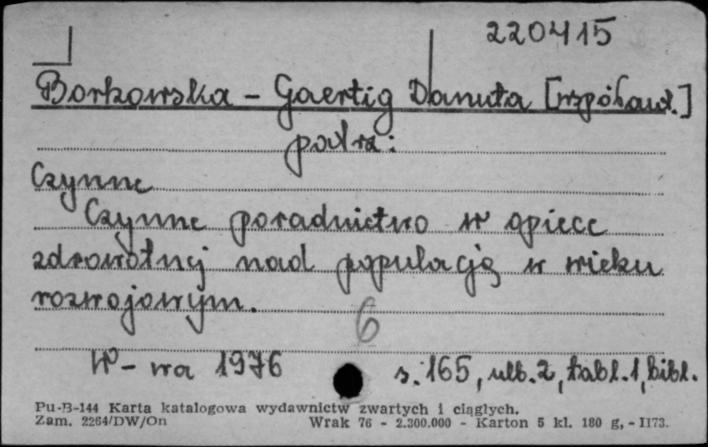 220415
Borkowska - Gaertig Danuta [współaut.]
patrz:
Czynne
Czynne poradnictwo w opiece
zdrowotnej nad populacją w wieku
rozwojowym.
6
W-wa 1976 s. 165, ulb. 2, tabl. 1, bibl.
Pu-B-144 Karta katalogowa wydawnictw zwartych i ciągłych.
Zam. 2264/DW/On Wrak 76 - 2.300.000 - Karton 5 kl. 180 g, - II73.